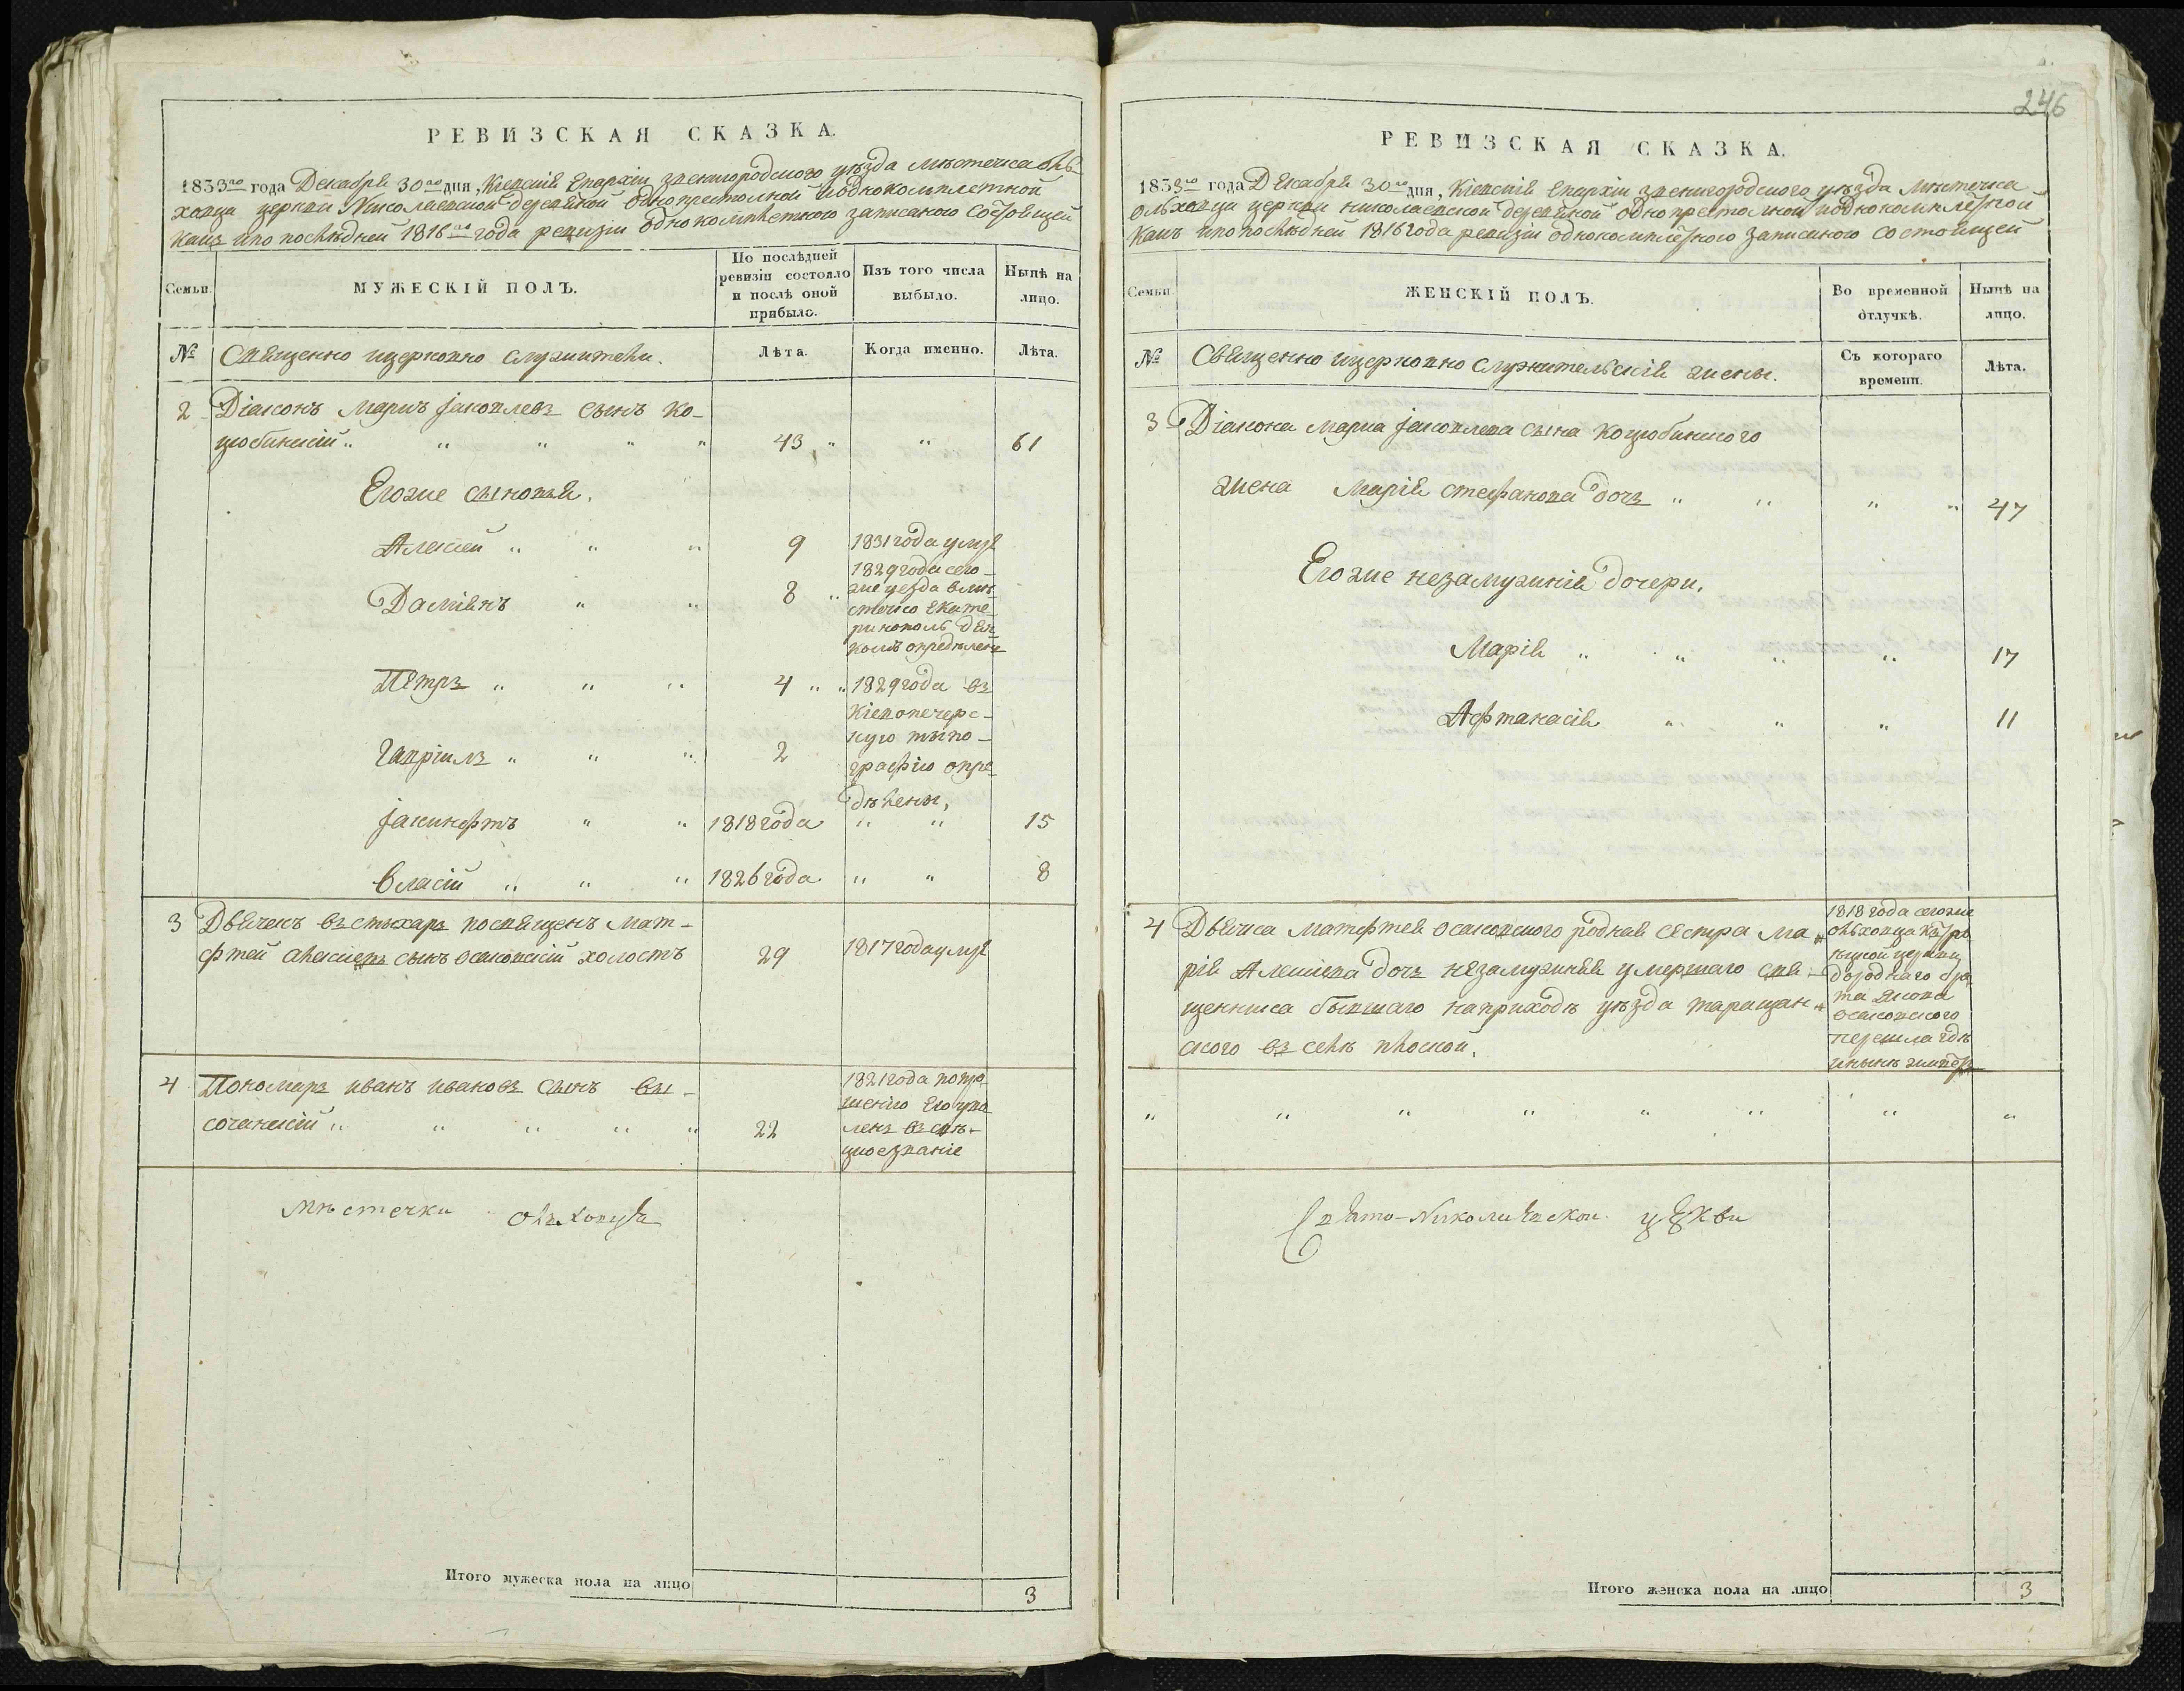 РЕВИЗСКАЯ СКАЗКА.
1833го года Декабря 30го дня, Кіевскія Епархіи звенигородского уѣзда мѣстечка оль-
ховца церкви Николаевской деревяной однопрестолной иоднокомплетной
какъ ипо послѣдней 1816го года ревизіи однокомплетного записаного состоящей
Семьи.
МУЖЕСКІЙ ПОЛЪ.
По послѣдней ревизіи состояло и послѣ оной прибыло.
Изъ того числа выбыло.
Нынѣ на лицо.
№
Священно ицерковно служители.
Лѣта.
Когда именно.
Лѣта.
2 Діаконъ Маркъ Іаковлевъ сынъ Ко-
цюбинскій " " " " " 43 " " 61
Егоже сыновья.
Алексей " " " 9 1831 года умре
Даміянъ " " 8 " 1829 года сего-
же уезда вмѣ-
стечко Екате-
ринополь дяч-
комъ опредѣленъ
Петръ " " " 4 " " 1829 года въ
Кіевопечерс-
кую типо-
Гавріилъ " " " 2 графію опре-
дѣлены,
Іакинфтъ " " 1818 года " " 15
Власій " " " 1826 года " " 8
3 Дьячекъ въ стыхарь посвященъ Мат-
фтей алексіевъ сынъ Осаковскій холостъ 29 1817 года умре
4 Пономарь иванъ ивановъ сынъ вы-
сочанскій " " " " " 22
1821 года попро-
шенію Его уво-
ленъ въ свѣ-
цкоезваніе
Мѣстечка Ольховца
Итого мужеска пола на лицо 3
246
РЕВИЗСКАЯ СКАЗКА.
1833го года Декабря 30го дня, Кіевскія Епархіи звенигородского уѣзда мѣстечка
ольховца церкви николаевской деревяной однопрестолной иоднокомплетной
какъ ипо послѣдней 1816 года ревизіи однокомплетного записаного состоящей
Семьи.
ЖЕНСКІЙ ПОЛЪ.
Во временной отлучкѣ.
Нынѣ на лицо.
№
Священно ицерковно служительскія жены.
Съ котораго времени.
Лѣта.
3 Діакона Марка Іаковлева сына Коцюбинского
жена Марія стефанова дочь " " " " 47
Егоже незамужнія дочери.
Марія " " " " 17
Афтанасія " " " 11
4 Дьячка Матфтея Осаковского родная сестра Ма-
рія Алексіева дочь незамужняя умершаго свя-
щенника бывшаго наприходѣ уѣзда таращан-
ского въ селѣ плоской.
1818 года сегоже
ольховца къ
церкви
дородного бра-
та Якова
Осаковского
перешла гдѣ
инынѣ живетъ
" " " " " " " "
Свято-Николаевской церкви
Итого женска пола на лицо 3